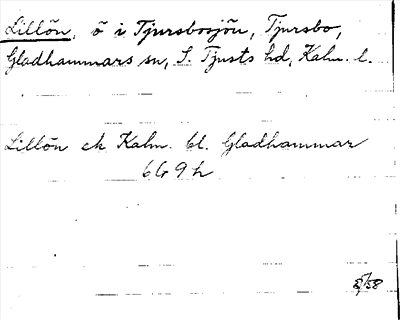 Lillön, ö i Tjursbosjön, Tjursbo,
Gladhammars sn, S. Tjusts hd, Kalm. l.
Lillön ek Kalm. bl. Gladhammar
6G9h
/58